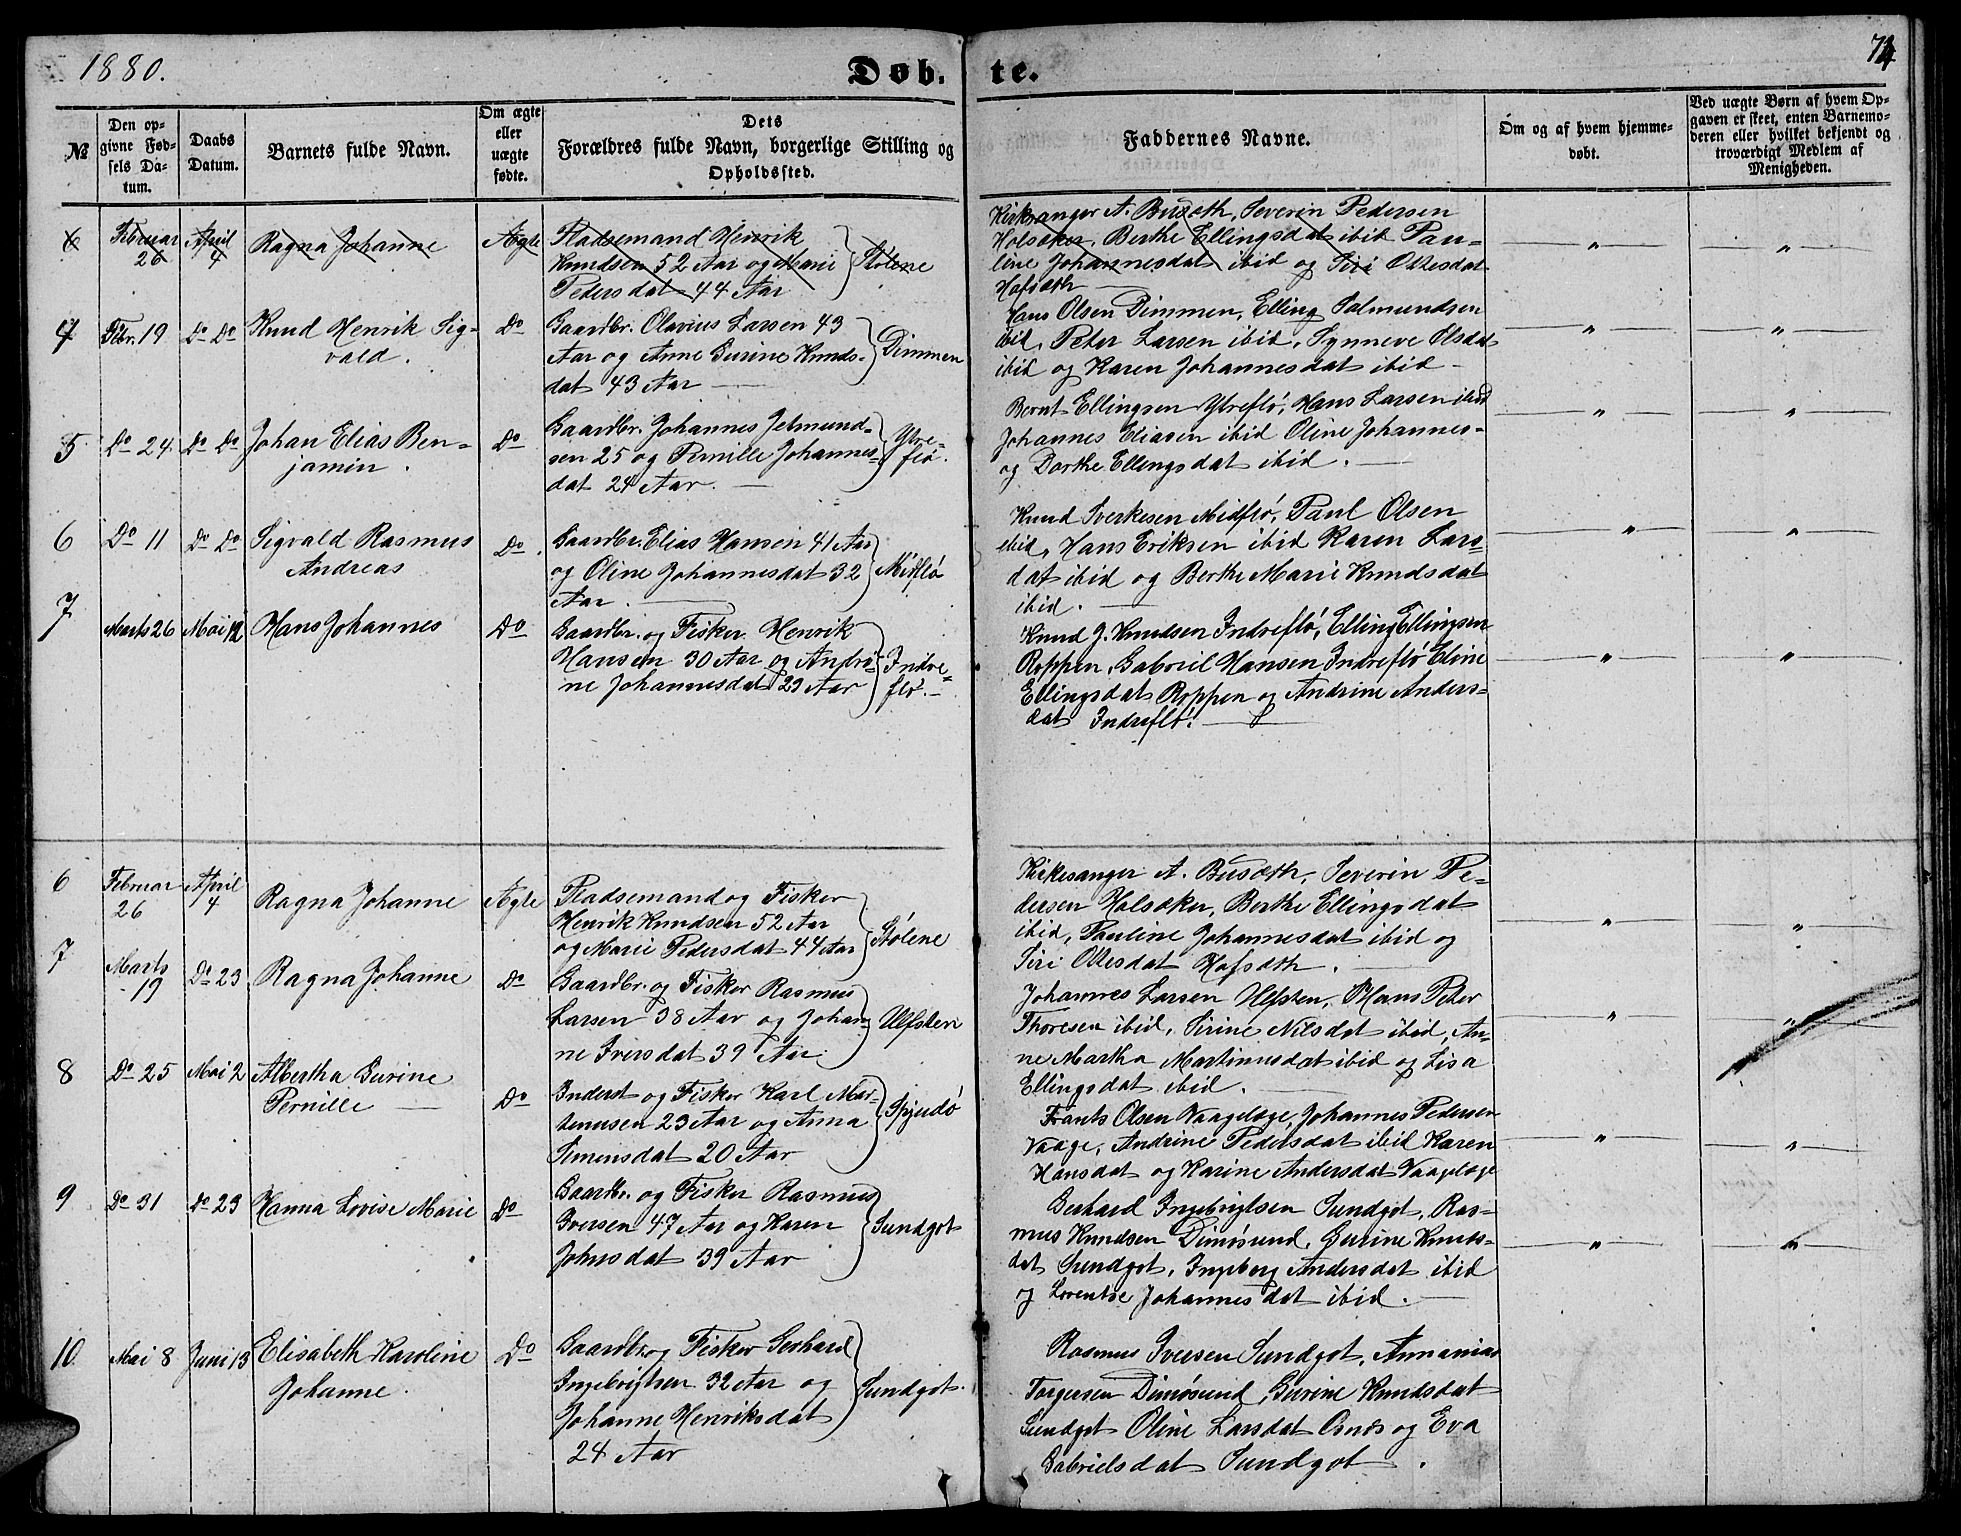 1880.
Døb.
te.
74
№
Den op-
givne Fød-
sels Da-
tum.
Daabs
Datum.
Barnets fulde Navn.
Om ægte
eller
uægte
fødte.
Dets
Forældres fulde Navn, borgerlige Stilling og
Opholdssted.
Faddernes Navne.
Om og af hvem hjemme-
døbt.
Ved uægte Børn af hvem Op-
gaven er skeet, enten Barnemo-
deren eller hvilket bekjendt og
troværdigt Medlem af
Menigheden.
6
Februar
26
April
4
Ragna Johanne
Ægte
Pladsemand Henrik
Knudsen 52 Aar og Marie
Pedersdat 44 Aar
Stølene
Kirksanger A. Busæth, Severin Pedersen
Holsæker, Berthe Ellingsdat ibid Pau-
line Johannesdat ibid og Siri Ottesdat
Hofsæth
4
Febr. 19
Do Do
Knud Henrik Sig-
vald.
Do
Gaardbr. Olavius Larsen 43
Aar og Anne Gurine Knuds-
dat 43 Aar
Dimmen
Hans Olsen Dimmen, Elling Salmundsen
ibid, Peter Larsen ibid, Synneve Olsdat
ibid og Karen Johannesdat ibid
5
Do 24
Do Do
Johan Elias Ben-
jamin.
Do
Gaardbr. Johannes Jetmund-
sen 25 og Pernille Johannes-
dat 24 Aar.
Ytre-
flø.
Bernt Ellingsen Ytreflø, Hans Larsen ibid
Johannes Eliasen ibid Oline Johannes-
og Dorthe Ellingsdat ibid.
6
Do 11
Do Do
Sigvald Rasmus
Andreas
Do.
Gaardbr. Elias Hansen 41 Aar
og Oline Johannesdat 32
Aar.
Midflø
Knud Sverkesen Midflø, Paul Olsen
ibid, Hans Eriksen ibid Karen Lars-
dat ibid og Berthe Marie Knudsdat
ibid.
7
Marts 26
Mai 12
Hans Johannes
Do
Gaardbr. og Fisker Henrik
Hansen 30 Aar og Andri-
ne Johannesdat 29 Aar
Indre-
flø.
Knud J. Knudsen Indreflø, Elling Ellingsen
Roppen, Gabriel Hansen Indreflø Eline
Ellingsdat Roppen og Andrine Anders-
dat Indreflø.
6
Februar
26
April
4
Ragna Johanne
Ægte
Pladsemand og Fisker
Henrik Knudsen 52 Aar
og Marie Pedersdat 44 Aar
Stølene
Kirkesanger A. Busæth, Severin Pe-
dersen Holsæker, Berthe Ellingsdat
ibid, Pauline Johannesdat ibid og
Siri Ottesdat Hofsæth.
7
Marts
19
Do 23
Ragna Johanne
Do
Gaardbr. og Fisker Rasmus
Larsen 38 Aar og Johan-
ne Iversdat 39 Aar.
Ulfsten
Johannes Larsen Ulfsten, Hans Peter
Thoresen ibid, Sirine Nilsdat ibid, An-
ne Martha Martinusdat ibid og Lisa
Ellingsdat ibid.
8
Do 25
Mai 2
Albertha Gurine
Pernille
Do
Inderst og Fisker Karl Mar-
tinusen 23 Aar og Anna
Simensdat 20 Aar
Spjudø
Frants Olsen Vaageløge, Johannes Pedersen
Vaage, Andrine Pedersdat ibid Karen
Hansdat og Karine Andersdat Vaageløge
9
Do 31
Do 23
Hanna Lovise Marie
Do
Gaardbr. og Fisker Rasmus
Iversen 47 Aar og Karen
Johnsdat 39 Aar
Sundgot
Gerhard Ingebrigtsen Sundgot, Ras-
mus Knudsen Dimøsund, Gurine Knuds-
dat Sundgot, Ingeborg Andersdat ibid
og Lorentse Johannesdat ibid.
10
Mai 8
Juni 13
Elisabeth Karoline
Johanne.
Do
Gaardbr. og Fisker Gerhard
Ingebrigtsen 32 Aar og
Johanne Henriksdat
24 Aar
Sundgot.
Rasmus Iversen Sundgot, Annanias
Torgersen Dimøsund, Gurine Knudsdat
Sundgot Oline Larsdat Osnes og Eva
Gabrielsdat Sundgot.